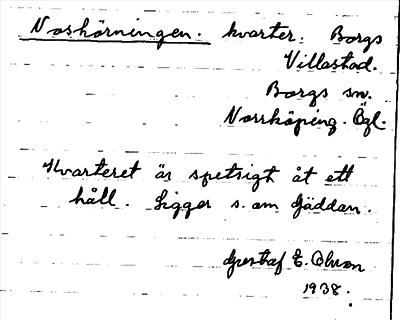 Noshörningen. kvarter. Borgs
Villastad.
Borgs sn.
Norrköping. Ögl.
Kvarteret är spetsigt åt ett
håll. Ligger s. om Gäddan.
Gustaf E. Olson
1938.